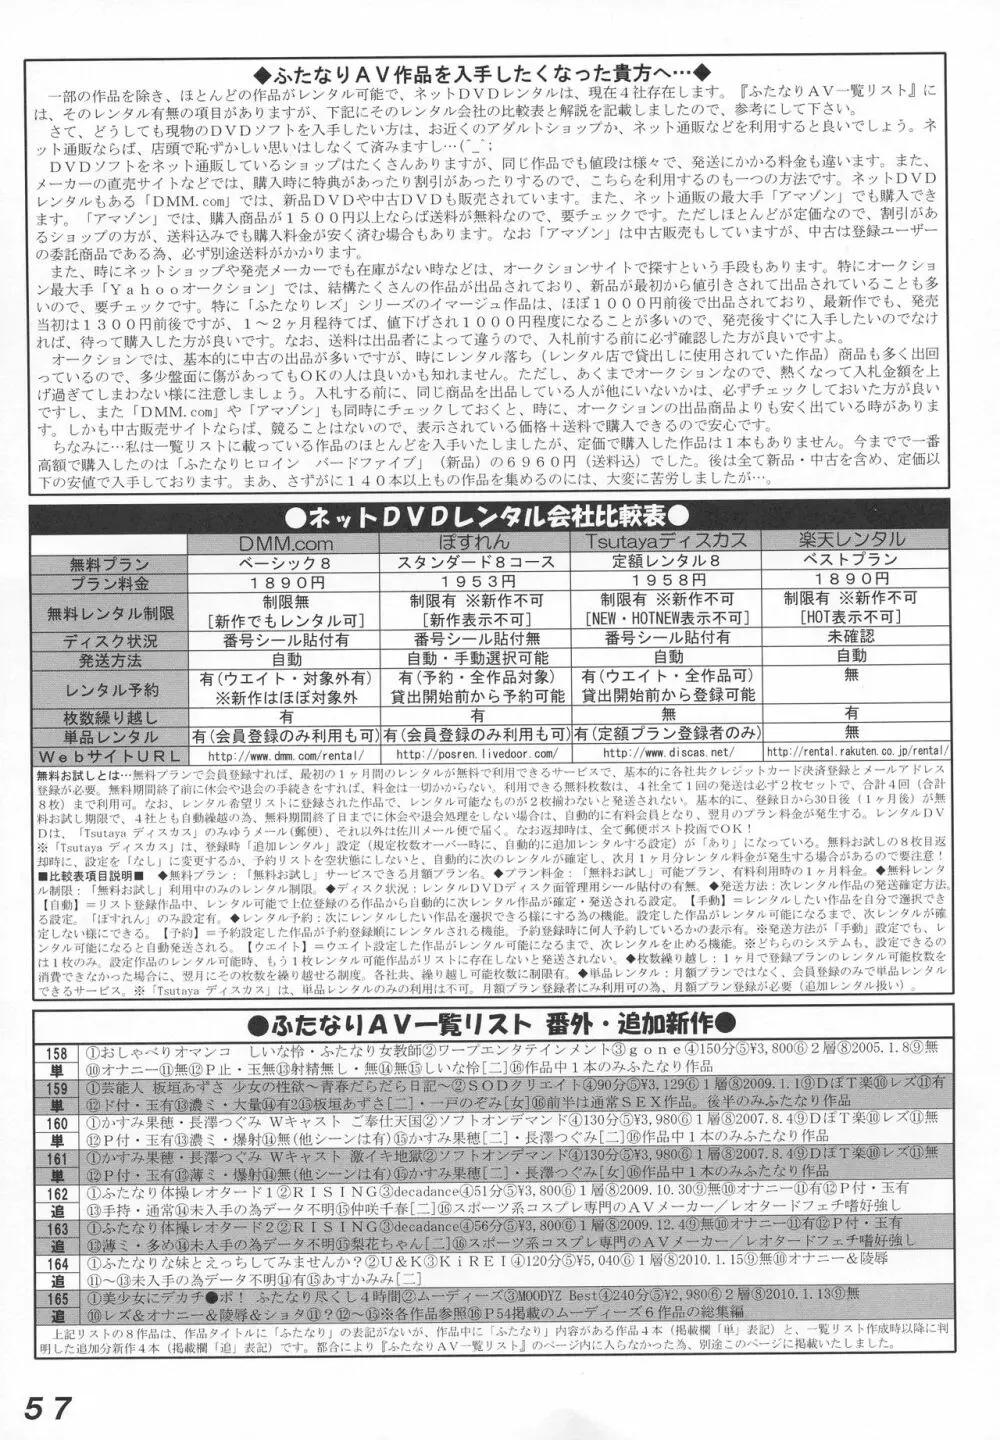 ◆ふたなりＡＶ作品を入手したくなった貴方へ…◆
一部の作品を除き、ほとんどの作品がレンタル可能で、ネットＤＶＤレンタルは、現在４社存在します。『ふたなりＡＶ一覧リスト』に
は、そのレンタル有無の項目がありますが、下記にそのレンタル会社の比較表と解説を記載しましたので、参考にして下さい。
さて、どうしても現物のＤＶＤソフトを入手したい方は、お近くのアダルトショップか、ネット通販などを利用すると良いでしょう。ネ
ット通販ならば、店頭で恥ずかしい思いはしなくて済みますし…(^_^;
ＤＶＤソフトをネット通販しているショップはたくさんありますが、同じ作品でも値段は様々で、発送にかかる料金も違います。また、
メーカーの直売サイトなどでは、購入時に特典があったり割引があったりするので、こちらを利用するのも一つの方法です。ネットＤＶＤ
レンタルもある「DMM.com」では、新品ＤＶＤや中古ＤＶＤも販売されています。また、ネット通販の最大手「アマゾン」でも購入でき
ます。「アマゾン」では、購入商品が１５００円以上ならば送料が無料なので、要チェックです。ただしほとんどが定価なので、割引があ
るショップの方が、送料込みでも購入料金が安く済む場合もあります。なお「アマゾン」は中古販売もしていますが、中古は登録ユーザー
の委託商品である為、必ず別途送料がかかります。
また、時にネットショップや発売メーカーでも在庫がない時などは、オークションサイトで探すという手段もあります。特にオークショ
ン最大手「Ｙａｈｏｏオークション」では、結構たくさんの作品が出品されており、新品が最初から値引きされて出品されていることも多
いので、要チェックです。特に「ふたなりレズ」シリーズのイマージュ作品は、ほぼ１０００円前後で出品されており、最新作でも、発売
当初は１３００円前後ですが、１～２ヶ月程待てば、値下げされ１０００円程度になることが多いので、発売後すぐに入手したいのでなけ
れば、待って購入した方が良いです。なお、送料は出品者によって違うので、入札前する前に必ず確認した方が良いですよ。
オークションでは、基本的に中古の出品が多いですが、時にレンタル落ち（レンタル店で貸出しに使用されていた作品）商品も多く出回
っているので、多少盤面に傷があってもＯＫの人は良いかも知れません。ただし、あくまでオークションなので、熱くなって入札金額を上
げ過ぎてしまわない様に注意しましょう。入札する前に、同じ商品を出品している人が他にいないかは、必ずチェックしておいた方が良い
ですし、また「DMM.com」や「アマゾン」も同時にチェックしておくと、時に、オークションの出品商品よりも安く出ている時がありま
す。しかも中古販売サイトならば、競ることはないので、表示されている価格＋送料で購入できるので安心です。
ちなみに…私は一覧リストに載っている作品のほとんどを入手いたしましたが、定価で購入した作品は１本もありません。今までで一番
高額で購入したのは「ふたなりヒロイン　バードファイブ」（新品）の６９６０円（送料込）でした。後は全て新品・中古を含め、定価以
下の安値で入手しております。まあ、さすがに１４０本以上もの作品を集めるのには、大変に苦労しましたが…。
●ネットＤＶＤレンタル会社比較表●
DMM.com ぽすれん Tsutayaディスカス 楽天レンタル
無料プラン ベーシック８ スタンダード８コース 定額レンタル８ ベストプラン
プラン料金 １８９０円 １９５３円 １９５８円 １８９０円
無料レンタル制限 制限無 制限有 ※新作不可 制限有 ※新作不可 制限有 ※新作不可
[新作でもレンタル可] [新作表示不可] [NEW・HOTNEW表示不可] [HOT表示不可]
ディスク状況 番号シール貼付有 番号シール貼付無 番号シール貼付有 未確認
発送方法 自動 自動・手動選択可能 自動 自動
レンタル予約 有(ウエイト・対象外有) 有(予約・全作品対象) 有(ウエイト・全作品可) 無
※新作はほぼ対象外 貸出開始前から予約可能 貸出開始前から登録可能
枚数繰り越し 有 有 無 有
単品レンタル 有(会員登録のみ利用も可) 有(会員登録のみ利用も可) 有(定額プラン登録者のみ) 無
ＷｅｂサイトＵＲＬ http://www.dmm.com/rental/ http://posren.livedoor.com/ http://www.discas.net/ http://rental.rakuten.co.jp/rental/
無料お試しとは…無料プランで会員登録すれば、最初の１ヶ月間のレンタルが無料で利用できるサービスで、基本的に各社共クレジットカード決済登録とメールアドレス
登録が必要。無料期間終了前に休会や退会の手続きをすれば、料金は一切かからない。利用できる無料枚数は、４社全て１回の発送は必ず２枚セットで、合計４回（合計
８枚）まで利用可。なお、レンタル希望リストに登録された作品で、レンタル可能なものが２枚揃わないと発送されない。基本的に、登録日から30日後（１ヶ月後）が無
料お試し期限で、４社とも自動継続の為、無料期間終了日までに休会や退会処理をしない場合は、自動的に有料会員となり、翌月のプラン料金が発生する。レンタルＤＶ
Ｄは、「Tsutaya ディスカス」のみゆうメール(郵便)、それ以外は佐川メール便で届く。なお返却時は、全て郵便ポスト投函でＯＫ！
※「Tsutaya ディスカス」は、登録時「追加レンタル」設定（規定枚数オーバー時に、自動的に追加レンタルする設定）が「あり」になっている。無料お試しの８枚目返
却時に、設定を「なし」に変更するか、予約リストを空状態にしないと、自動的に次のレンタルが確定し、次月１ヶ月分レンタル料金が発生する場合があるので要注意！
■比較表項目説明■　◆無料プラン：「無料お試し」サービスできる月額プラン名。◆プラン料金：「無料お試し」可能プラン、有料利用時の１ヶ月料金。◆無料レンタ
ル制限：「無料お試し」利用中のみのレンタル制限。◆ディスク状況：レンタルＤＶＤディスク面管理用シール貼付の有無。◆発送方法：次レンタル作品の発送確定方法。
【自動】＝リスト登録作品中、レンタル可能で上位登録のる作品から自動的に次レンタル作品が確定・発送される設定。【手動】＝レンタルしたい作品を自分で選択でき
る設定。「ぽすれん」のみ設定有。◆レンタル予約：次にレンタルしたい作品を選択できる様にする為の機能。設定した作品がレンタル可能になるまで、次レンタルが確
定しない様にできる。【予約】＝予約設定した作品が予約登録順にレンタルされる機能。予約登録時に何人予約しているかの表示有。※発送方法が「手動」設定でも、レ
ンタル可能になると自動発送される。【ウエイト】＝ウエイト設定した作品がレンタル可能になるまで、次レンタルを止める機能。※どちらのシステムも、設定できるの
は１枚のみ。設定作品のレンタル可能時、もう１枚レンタル可能作品がリストに存在しないと発送されない。◆枚数繰り越し：１ヶ月で登録プランのレンタル可能枚数を
消費できなかった場合に、翌月にその枚数を繰り越せる制度。各社共、繰り越し可能枚数に制限有。◆単品レンタル：月額プランではなく、会員登録のみで単品レンタル
できるサービス。※「Tsutaya ディスカス」は、単品レンタルのみの利用は不可。月額プラン登録者にみ利用可の為、月額プラン登録が必要（追加レンタル扱い）。
●ふたなりＡＶ一覧リスト 番外・追加新作●
158 ①おしゃべりオマンコ　しいな怜・ふたなり女教師②ワープエンタテインメント③ｇｏｎｅ④150分⑤¥3,800⑥２層⑧2005.1.8⑨無
単 ⑩オナニー⑪無⑫Ｐ止・玉無⑬射精無し・無⑭無⑮しいな怜[二]⑯作品中１本のみふたなり作品
159 ①芸能人 板垣あずさ 少女の性欲～青春だらだら日記～②ＳＯＤクリエイト④90分⑤¥3,129⑥１層⑧2009.1.1⑨ＤぽＴ楽⑩レズ⑪有
単 ⑫ド付・玉有⑬濃ミ・大量⑭有2⑮板垣あずさ[二]・一戸のぞみ[女]⑯前半は通常ＳＥＸ作品。後半のみふたなり作品
160 ①かすみ果穂・長澤つぐみ Ｗキャスト ご奉仕天国②ソフトオンデマンド④130分⑤¥3,980⑥１層⑧2007.8.4⑨ＤぽＴ楽⑩レズ⑪無
単 ⑫Ｐ付・玉有⑬濃ミ・爆射⑭無(他シーンは有)⑮かすみ果穂[二]・長澤つぐみ[二]⑯作品中１本のみふたなり作品
161 ①かすみ果穂・長澤つぐみ Ｗキャスト 激イキ地獄②ソフトオンデマンド④130分⑤¥3,980⑥１層⑧2007.8.4⑨ＤぽＴ楽⑩レズ⑪無
単 ⑫Ｐ付・玉有⑬薄ミ・爆射⑭無(他シーンは有)⑮かすみ果穂[二]・長澤つぐみ[女]⑯作品中１本のみふたなり作品
162 ①ふたなり体操レオタード１②ＲＩＳＩＮＧ③decadance④51分⑤¥3,800⑥１層⑧2009.10.30⑨無⑩オナニー⑪有⑫Ｐ付・玉有
追 ⑬手持・通常⑭未入手の為データ不明⑮仲咲千春[二]⑯スポーツ系コスプレ専門のＡＶメーカー／レオタードフェチ嗜好強し
163 ①ふたなり体操レオタード２②ＲＩＳＩＮＧ③decadance④56分⑤¥3,800⑥１層⑧2009.12.4⑨無⑩オナニー⑪有⑫Ｐ付・玉有
追 ⑬薄ミ・多め⑭未入手の為データ不明⑮梨花ちゃん[二]⑯スポーツ系コスプレ専門のＡＶメーカー／レオタードフェチ嗜好強し
164 ①ふたなりな妹とえっちしてみませんか？②Ｕ＆Ｋ③ＫｉＲＥＩ④120分⑤¥5,040⑥１層⑧2010.1.15⑨無⑩オナニー＆陵辱
追 ⑪～⑬未入手の為データ不明⑭有⑮あすかみみ[二]
165 ①美少女にデカチ●ポ！ ふたなり尽くし４時間②ムーディーズ③MOODYZ Best④240分⑤¥2,980⑥２層⑧2010.1.13⑨無
追 ⑩レズ＆オナニー＆陵辱＆ショタ⑪？⑫～⑮※各作品参照⑯Ｐ54掲載のムーディーズ６作品の総集編
上記リストの８作品は、作品タイトルに「ふたなり」の表記がないが、作品中に「ふたなり」内容がある作品４本（掲載欄「単」表記）と、一覧リスト作成時以降に判
明した追加分新作４本（掲載欄「追」表記）です。都合により『ふたなりＡＶ一覧リスト』のページ内に入らなかった為、別途このページに掲載いたしました。
57